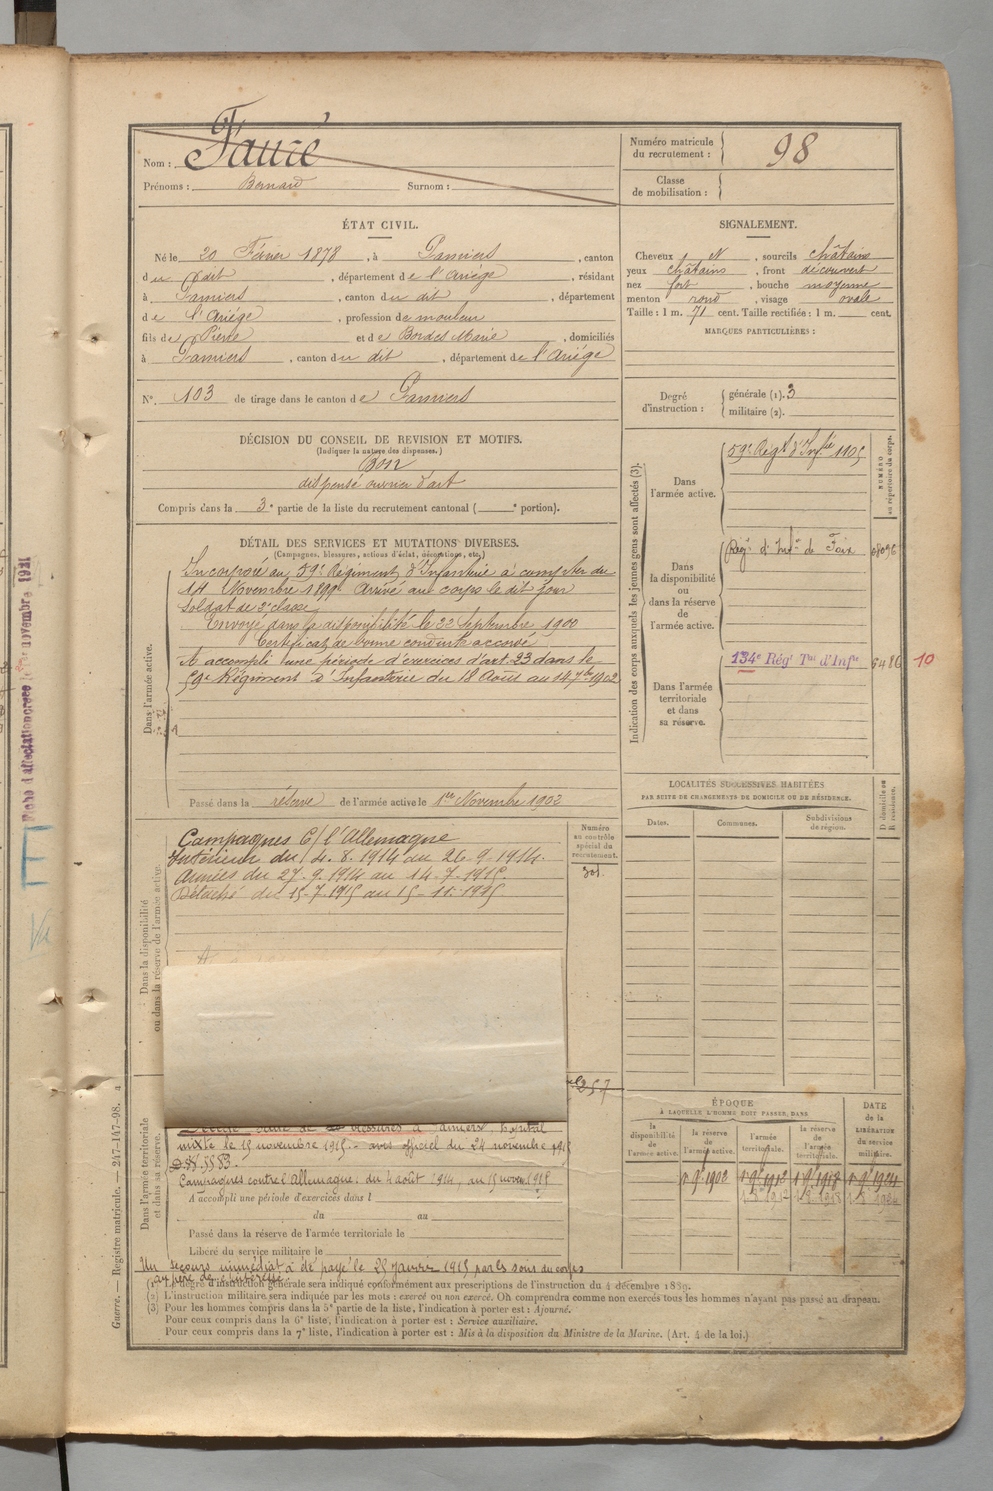 Nom : Fauré
Prénoms : Bernard Surnom :
Numéro matricule du recrutement : 98
Classe de mobilisation :
ÉTAT CIVIL.
Né le 20 Février 1878, à Pamiers, canton
du dit, département de l'Ariège, résidant
à Pamiers, canton du dit, département
de l'Ariège, profession de mouleur
fils de Pierre et de Bordes Marie, domiciliés
à Pamiers, canton du dit, département de l'Ariège
N° 103 de tirage dans le canton de Pamiers
SIGNALEMENT.
Cheveux N, sourcils châtains
yeux châtains, front découvert
nez fort, bouche moyenne
menton rond, visage ovale
Taille : 1 m. 71 cent. Taille rectifiée : 1 m. cent.
MARQUES PARTICULIÈRES :
Degré d'instruction : générale (1). 3
militaire (2).
DÉCISION DU CONSEIL DE REVISION ET MOTIFS.
(Indiquer la nature des dispenses.)
Bon
dispensé ouvrier d'art
Compris dans la 3e partie de la liste du recrutement cantonal ( e portion).
DÉTAIL DES SERVICES ET MUTATIONS DIVERSES.
(Campagnes, blessures, actions d'éclat, décorations, etc.)
Dans l'armée active.
Incorporé au 59e Régiment d'Infanterie à compter du
14 Novembre 1899. Arrivé au corps le dit jour
Soldat de 2e classe
Envoyé dans la disponibilité le 22 Septembre 1900
Certificat de bonne conduite accordé
A accompli une période d'exercices d'art. 23 dans le
59e Régiment d'Infanterie du 18 Août au 14 7bre 1902
Passé dans la réserve de l'armée active le 1er Novembre 1902
Indication des corps auxquels les jeunes gens sont affectés (3).
NUMÉRO au répertoire du corps.
Dans l'armée active.
59e Régt d'Inf.ie 1105
Dans la disponibilité ou dans la réserve de l'armée active.
Régt d'Inf.ie de Foix 08096
Dans l'armée territoriale et dans sa réserve.
134e Régt Tal d'Infie 5486 10
LOCALITÉS SUCCESSIVES HABITÉES
PAR SUITE DE CHANGEMENTS DE DOMICILE OU DE RÉSIDENCE.
Dates. Communes. Subdivisions de région. D domicile ou R résidence.
Dans la disponibilité ou dans la réserve de l'armée active.
Numéro au contrôle spécial du recrutement.
301
Campagnes C/ l'Allemagne
Intérieur du 4.8.1914 au 26-9-1914.
Armées du 27.9.1914 au 14-7-1915.
Détaché du 15-7-1915 au 15-11-1915
257
Dans l'armée territoriale et dans sa réserve.
Décédé suite de blessures à Pamiers, hopital
mixte le 15 novembre 1915. - avis officiel du 24 novembre 1915
Campagnes contre l'Allemagne. du 4 août 1914, au 15 novem. 1915
A accompli une période d'exercices dans l
du au
Passé dans la réserve de l'armée territoriale le
Libéré du service militaire le
Un secours immédiat a été payé le par les soins du corps
au père de
ÉPOQUE
À LAQUELLE L'HOMME DOIT PASSER, DANS
la disponibilité de l'armée active. la réserve de l'armée active. l'armée territoriale. la réserve de l'armée territoriale.
DATE de la LIBÉRATION du service militaire.
1 9bre 1902 1 9bre 1912 1 9bre 1918 1 9bre 1924
(1) Le degré d'instruction générale sera indiqué conformément aux prescriptions de l'instruction du 4 décembre 1889.
(2) L'instruction militaire sera indiquée par les mots : exercé ou non exercé. On comprendra comme non exercés tous les hommes n'ayant pas passé au drapeau.
(3) Pour les hommes compris dans la 5e partie de la liste, l'indication à porter est : Ajourné.
Pour ceux compris dans la 6e liste, l'indication à porter est : Service auxiliaire.
Pour ceux compris dans la 7e liste, l'indication à porter est : Mis à la disposition du Ministre de la Marine. (Art. 4 de la loi.)
Guerre. — Registre matricule. — 247-147-98.